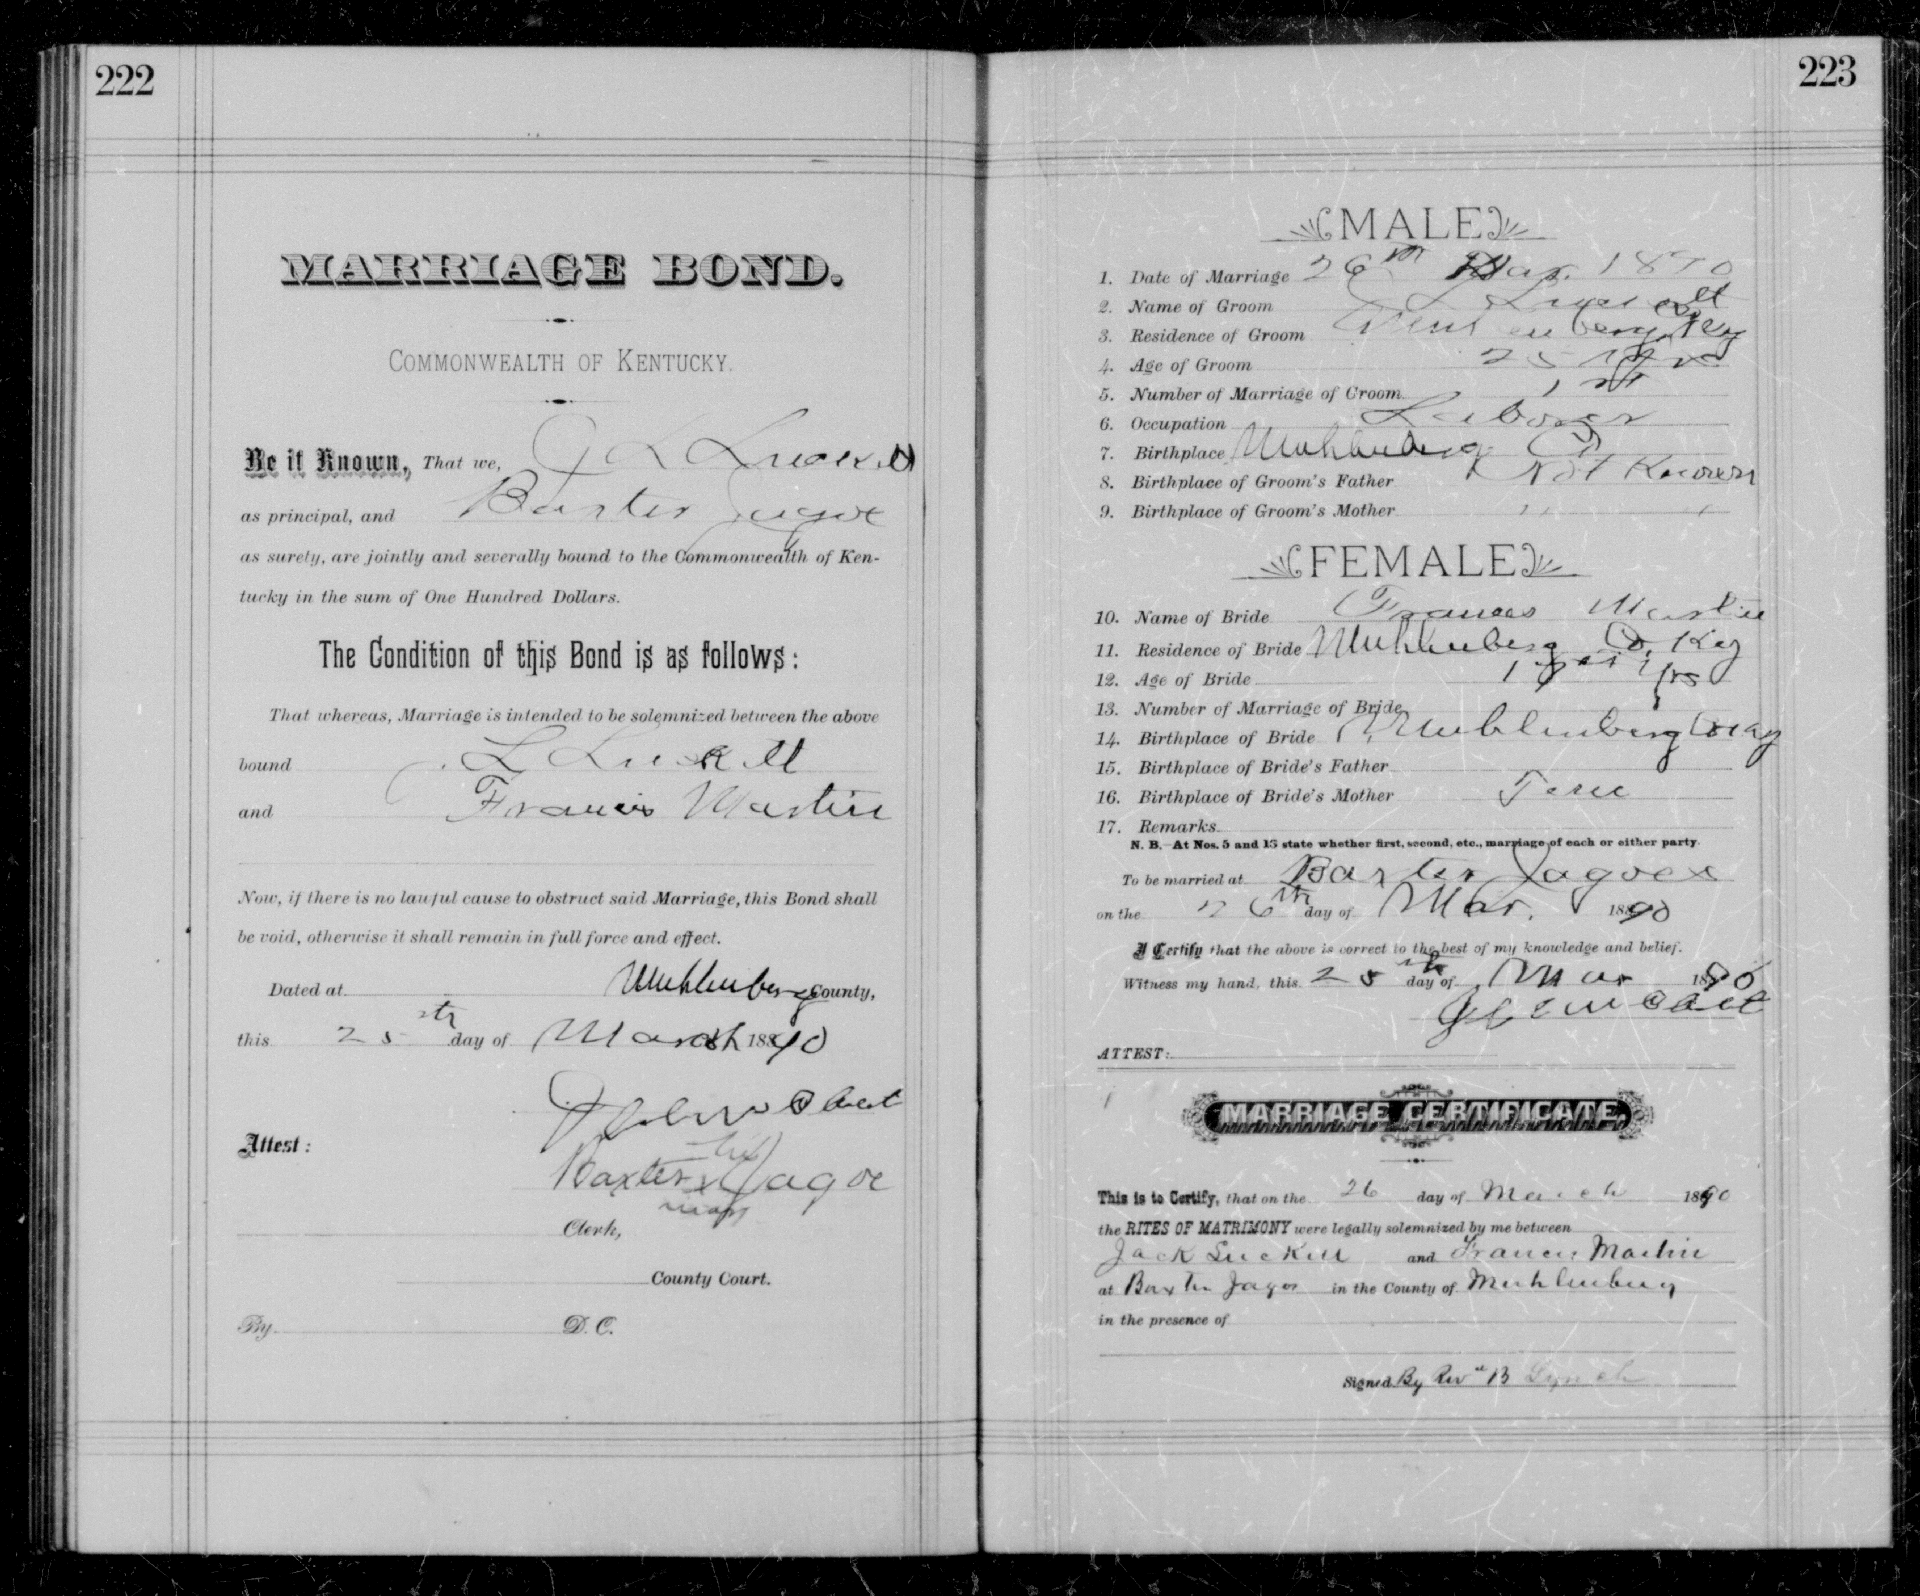 222
MARRIAGE BOND.
COMMONWEALTH OF KENTUCKY.
Be it Known, That we, J L Luckett
as principal, and Baxter Jagoe
as surety, are jointly and severally bound to the Commonwealth of Ken-
tucky in the sum of One Hundred Dollars.
The Condition of this Bond is as follows:
That whereas, Marriage is intended to be solemnized between the above
bound J. L Luckett
and Francis Martin
Now, if there is no lawful cause to obstruct said Marriage, this Bond shall
be void, otherwise it shall remain in full force and effect.
Dated at Muhlenberg County,
this 25th day of March 1890
Attest:
his
Baxter x Jagoe
mark
Clerk,
County Court.
By D. C.
223
MALE
1. Date of Marriage 26th Mar. 1890
2. Name of Groom J L Luckett
3. Residence of Groom Muhlenberg Key
4. Age of Groom 25 yrs
5. Number of Marriage of Groom 1st
6. Occupation Laborer
7. Birthplace Muhlenberg Co
8. Birthplace of Groom's Father Not Known
9. Birthplace of Groom's Mother " "
FEMALE
10. Name of Bride Frances Martin
11. Residence of Bride Muhlenberg Co. Key
12. Age of Bride yrs
13. Number of Marriage of Bride
14. Birthplace of Bride Muhlenberg Co Key
15. Birthplace of Bride's Father
16. Birthplace of Bride's Mother Tenn
17. Remarks
N. B.—At Nos. 5 and 13 state whether first, second, etc., marriage of each or either party.
To be married at Baxter Jagoes
on the 26th day of Mar. 1890
I Certify that the above is correct to the best of my knowledge and belief.
Witness my hand, this 25th day of Mar 1890
ATTEST:
MARRIAGE CERTIFICATE.
This is to Certify, that on the 26 day of March 1890
the RITES OF MATRIMONY were legally solemnized by me between
Jack Luckett and Francis Martin
at Baxter Jagoe in the County of Muhlenberg
in the presence of
Signed By Revd B Lynch